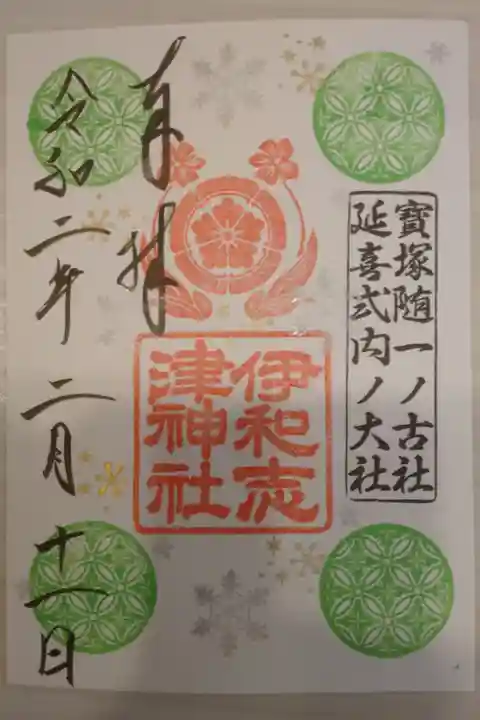 寳塚随一ノ古社
延喜式内ノ大社
奉拝
伊和志
津神社
令和二年二月十一日